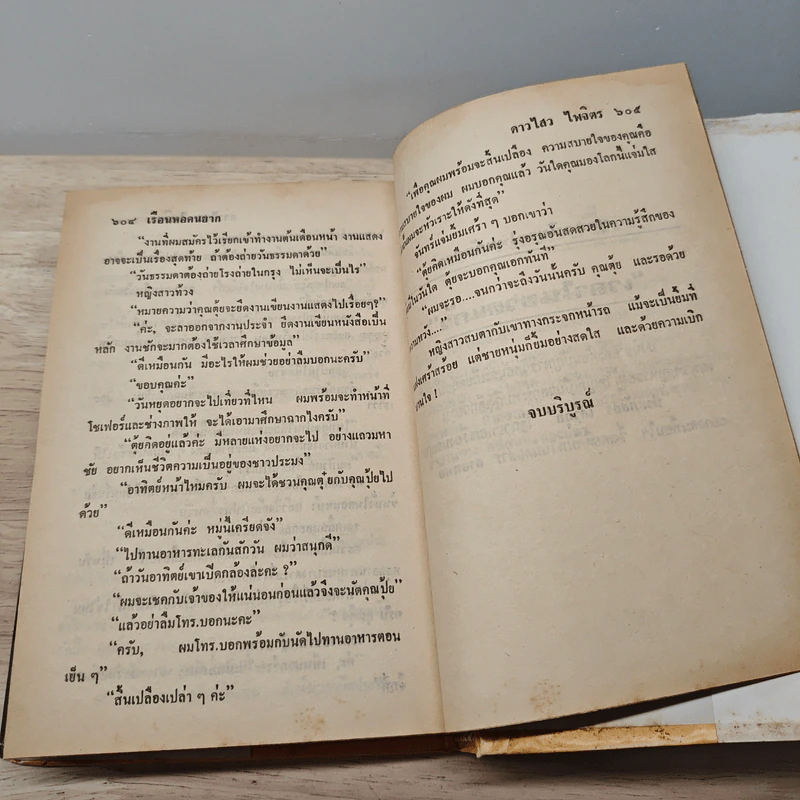 ๖๐๔ เรือนหอคนยาก
“งานที่ผมสมัครไว้เรียกเข้าทำงานต้นเดือนหน้า งานแสดง
อาจจะเป็นเรื่องสุดท้าย ถ้าต้องถ่ายวันธรรมดาด้วย”
“วันธรรมดาต้องถ่ายโรงถ่ายในกรุง ไม่เห็นจะเป็นไร”
หญิงสาวท้วง
“หมายความว่าคุณตุ้ยจะยึดงานเขียนงานแสดงไปเรื่อยๆ?”
“ค่ะ, จะลาออกจากงานประจำ ยึดงานเขียนหนังสือเป็น
หลัก งานชักจะมากต้องใช้เวลาศึกษาข้อมูล”
“ดีเหมือนกัน มีอะไรให้ผมช่วยอย่าลืมบอกนะครับ”
“ขอบคุณค่ะ”
“วันหยุดอยากจะไปเที่ยวที่ไหน ผมพร้อมจะทำหน้าที่
โชเฟอร์และช่างภาพให้ จะได้เอามาศึกษาฉากไงครับ”
“ตุ้ยคิดอยู่แล้วค่ะ มีหลายแห่งอยากจะไป อย่างแถวมหา
ชัย อยากเห็นชีวิตความเป็นอยู่ของชาวประมง”
“อาทิตย์หน้าไหมครับ ผมจะได้ชวนคุณตุ๋ยกับคุณปุ้ยไป
ด้วย”
“ดีเหมือนกันค่ะ หมู่นี้เครียดจัง”
“ไปทานอาหารทะเลกันสักวัน ผมว่าสนุกดี”
“ถ้าวันอาทิตย์เขาเปิดกล้องล่ะคะ ?”
“ผมจะเชคกับเจ้าของให้แน่นอนก่อนแล้วจึงจะนัดคุณปุ้ย”
“แล้วอย่าลืมโทร.บอกนะคะ”
“ครับ, ผมโทร.บอกพร้อมกับนัดไปทานอาหารตอน
เย็น ๆ”
“สิ้นเปลืองเปล่า ๆ ค่ะ”
ดาวไสว ไพจิตร ๖๐๕
“เพื่อคุณผมพร้อมจะสิ้นเปลือง ความสบายใจของคุณคือ
สบายใจของผม ผมบอกคุณแล้ว วันใดคุณมองโลกนี้แจ่มใส
ผมจะหัวเราะให้ดังที่สุด”
จันทร์แจ่มยิ้มเศร้า ๆ บอกเขาว่า
“ตุ้ยคิดเหมือนกันค่ะ รุ่งอรุณอันสดสวยในความรู้สึกของ
ในวันใด ตุ้ยจะบอกคุณเอกทันที”
“ผมจะรอ....จนกว่าจะถึงวันนั้นครับ คุณตุ้ย และรอด้วย
หวัง....”
หญิงสาวสบตากับเขาทางกระจกหน้ารถ แม้จะยิ้มที่
เศร้าสร้อย แต่ชายหนุ่มก็ยิ้มอย่างสดใส และด้วยความเบิก
บานใจ !
จบบริบูรณ์